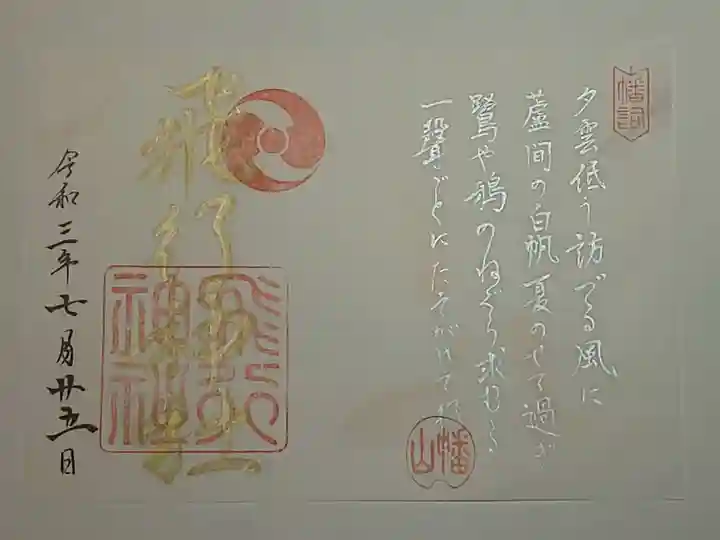 夕雲低う訪でる風に
蘆間の白帆夏のせて過ぎ
鷺や鴉のねぐら求むる
一聲ごとにたそがれて
幡山
飛行神社
飛行神社
令和三年七月廿五日